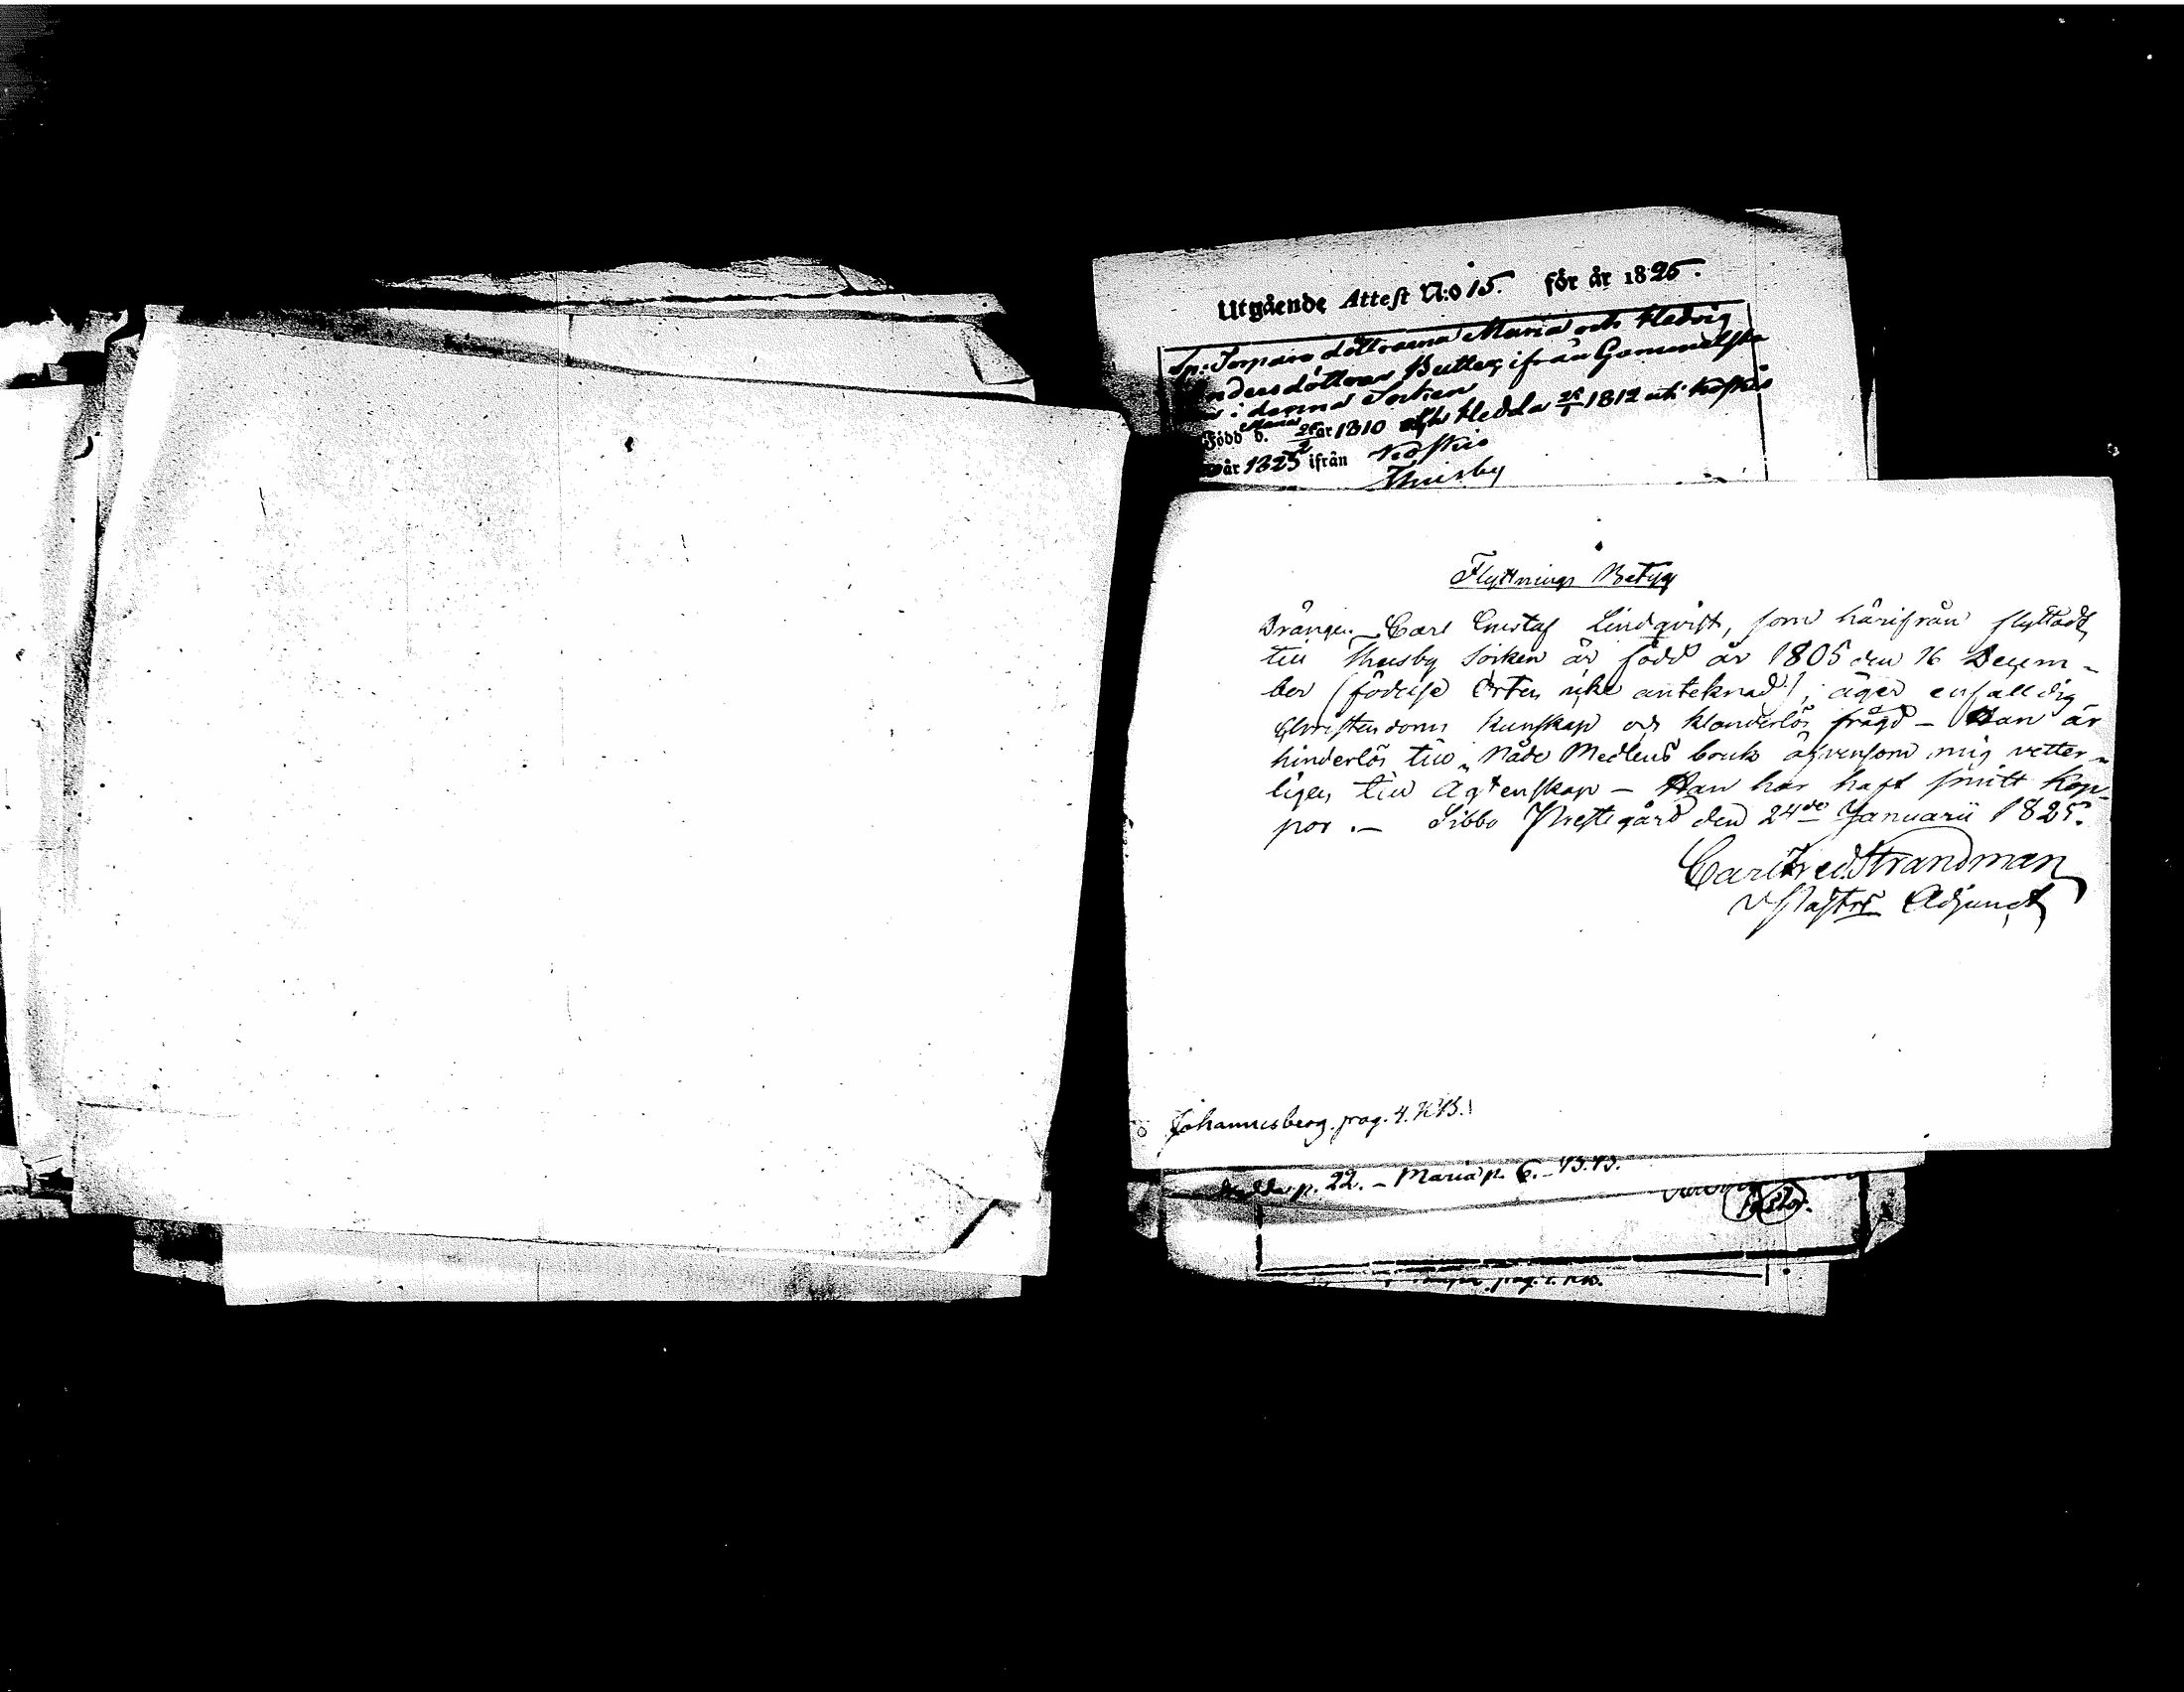 Utgående Attest N:o 15. för år 1825.
Sp: Torpare döttrarna Maria och Hedvig
Andersdöttrar Butter, ifrån Gammelsta
i denna Socken
Född d. Maria 26/2 år 1810 och Hedda 25/1 1812 uti Koskis
år 1825 ifrån Koskis
Thusby
Flyttnings Betyg
Drängen Carl Gustaf Lindqvist, som härifrån flyttadt
till Thusby Socken är född år 1805 den 16 Decem-
ber (födelse Orten icke anteknad), äger enfalldig
Christendoms kunskap och klanderlös frägd – Han är
hinderlös till Nåde Medlens bruk äfvensom mig vetter-
ligen till Ägtenskap – Han har haft smitt kop-
por. – Sibbo Prestegård den 24de Januarii 1825.
Carl Fred. Strandman
V Pastrs Adjunct
Johannisberg. pag. 4. KB.
p. 22. – Maria p. 6. – B.B.